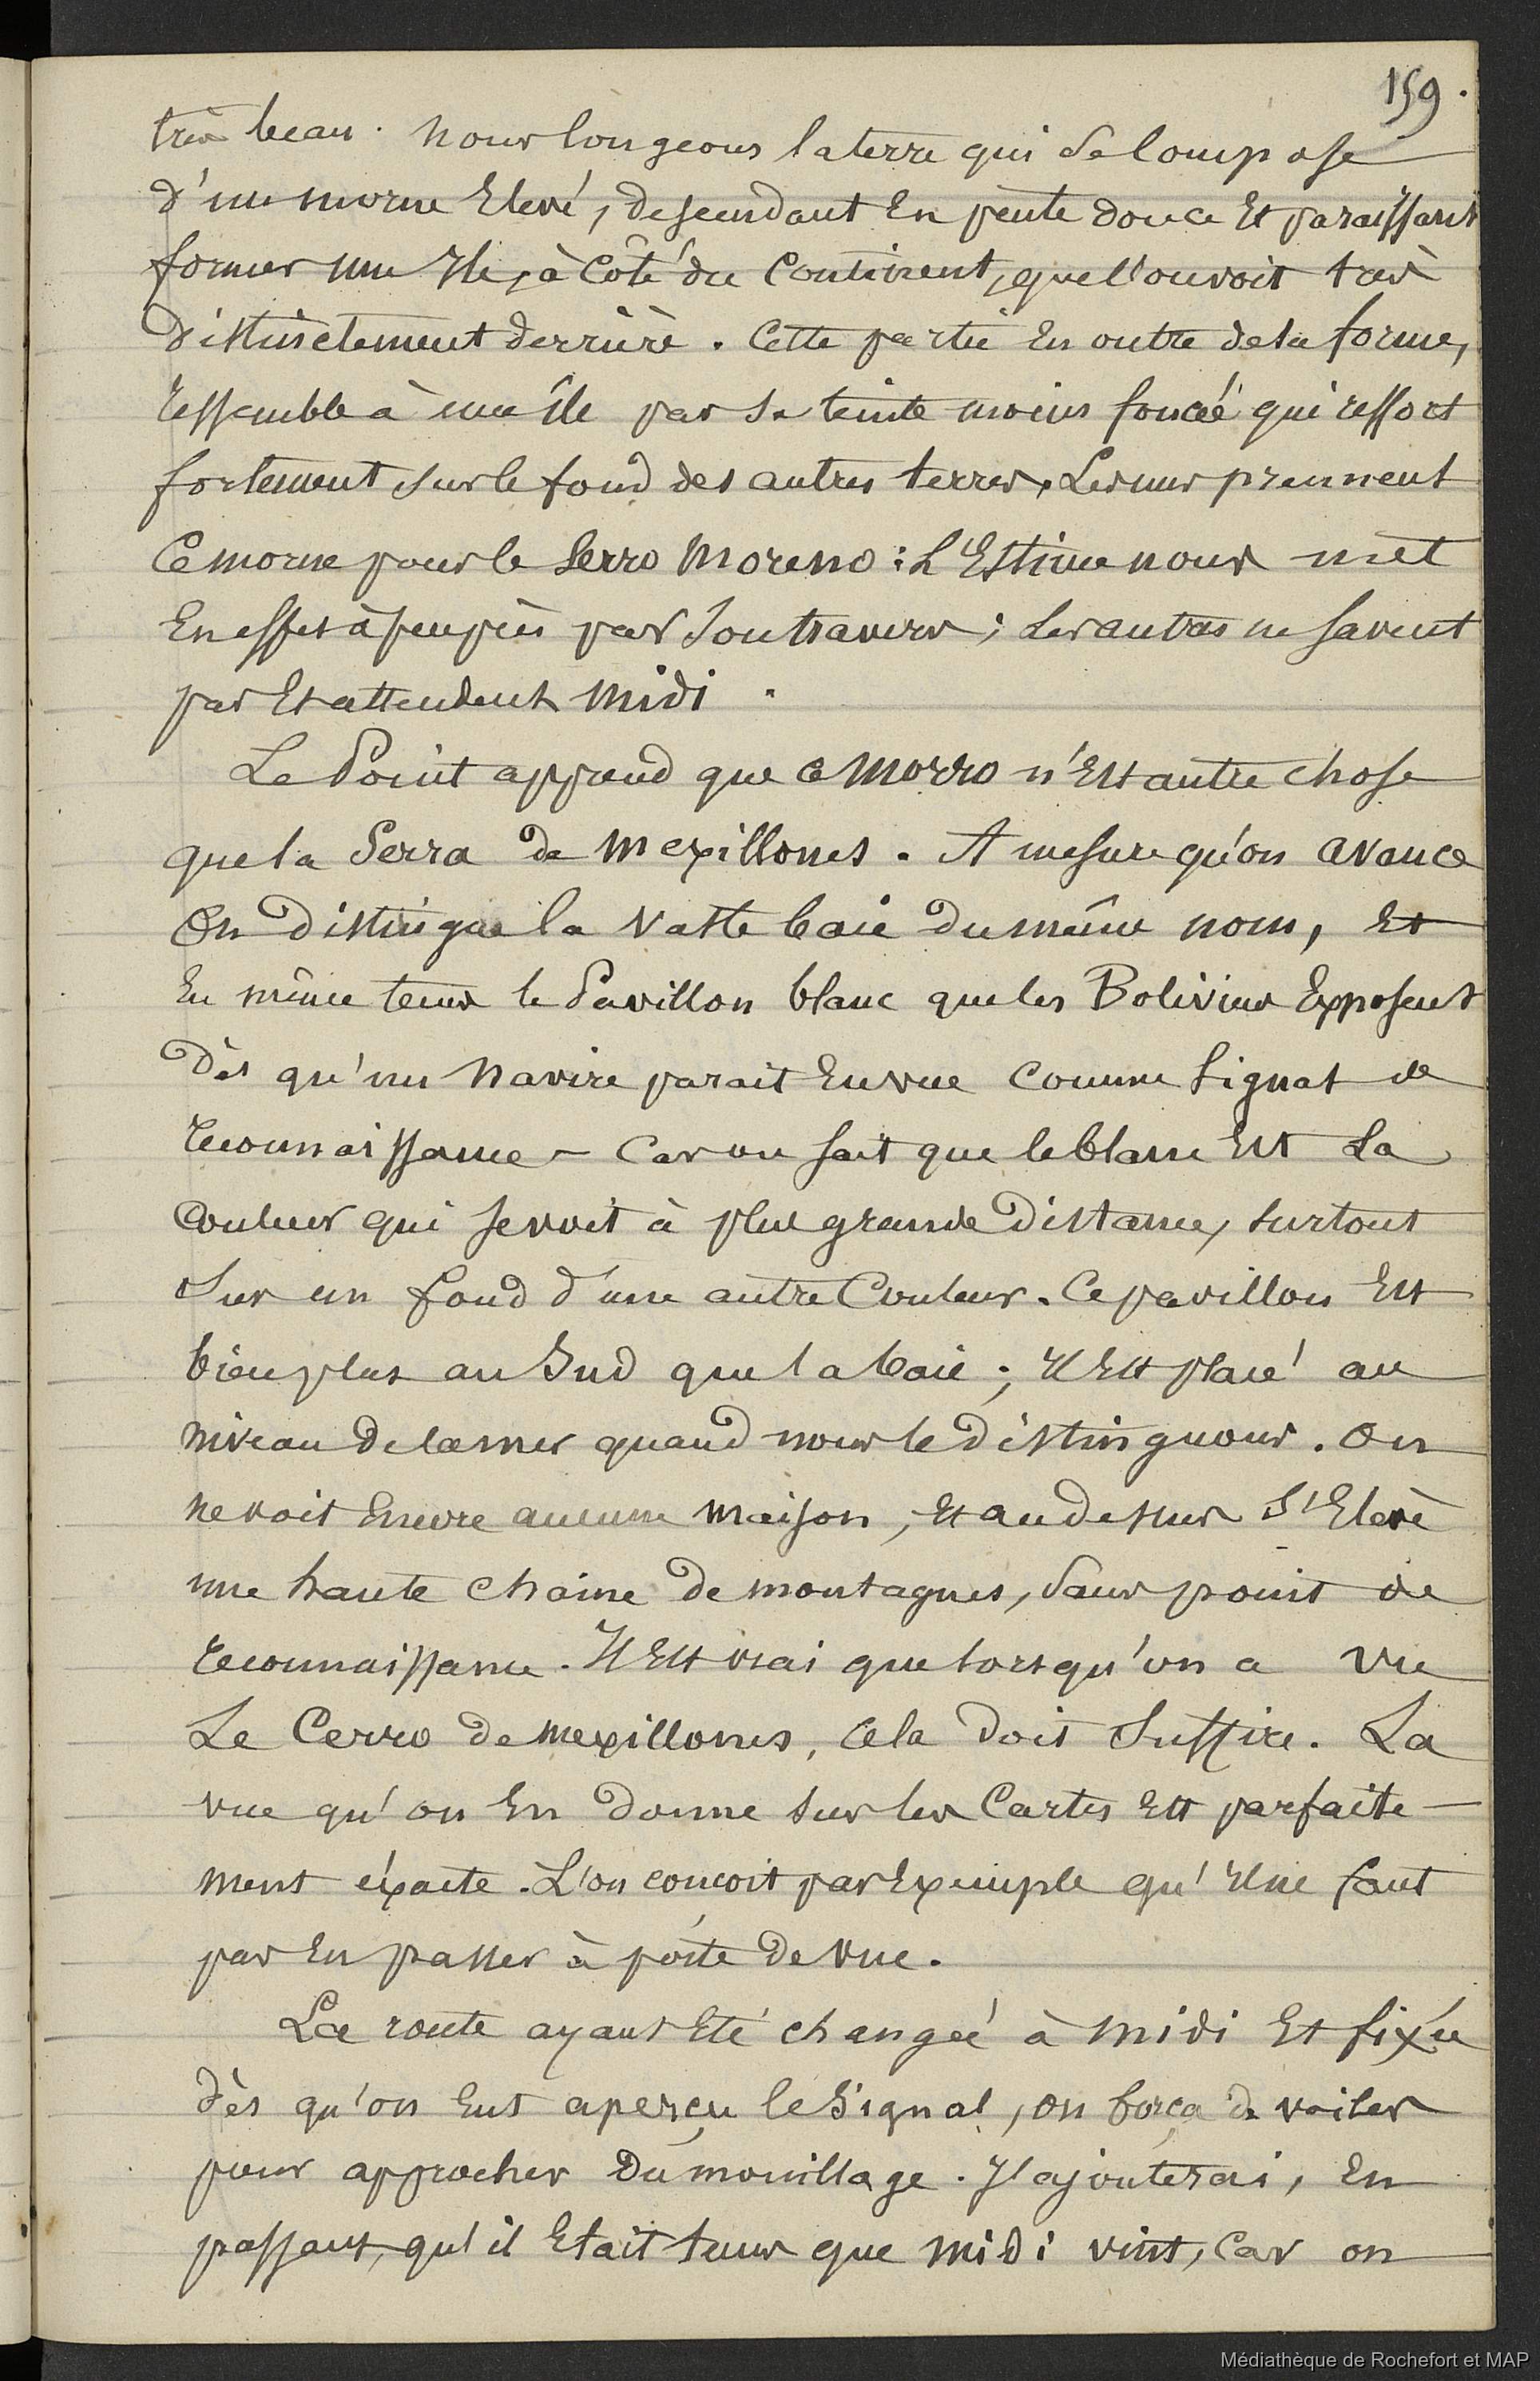 159.
très beau. Nous longeons la terre qui se compose
d'un morne Elevé, descendant En pente douce Et paraissant
former une Ile, à Côté du Continent, que l'on voit très
distinctement derrière. Cette partie En outre de la forme,
ressemble à une île par sa teinte moins foncée qui ressort
fortement sur le fond des autres terres. Les uns prennent
Ce morne pour le Serro Moreno : L'Estime nous met
En effet à peu près par son travers ; Les autres ne savent
pas Et attendent Midi.
Le Point apprend que ce Morro n'Est autre chose
que la Serra de Mexillones. A mesure qu'on avance
On distingue la vaste baie du même nom, Et
En même tems le Pavillon blanc que les Boliviens Exposent
Dès qu'un Navire parait En vue Comme Signal de
reconnaissance – Car on sait que le blanc Est La
Couleur qui se voit à plus grande distance, surtout
Sur un fond d'une autre Couleur. Ce pavillon Est
bien plus au Sud que la baie ; Il Est placé au
niveau de la mer quand nous le distinguons. On
ne voit Encore aucune maison, Et au dessus S'Elève
une haute chaine de montagnes, sans point de
reconnaissance. Il Est vrai que lorsqu'on a vu
Le Cerro de Mexillones, Cela doit suffire. La
vue qu'on En donne sur les Cartes Est parfaite–
ment éxacte. L'on concoit par Exemple qu'Il ne faut
pas En passer à porte de vue.
La route ayant Eté changée à midi Et fixée
dès qu'on Eut aperçu le Signal, on força de voiles
pour approcher du mouillage. J'ajouterai, En
passant, qu'il Etait tems que midi vint, Car on
Médiathèque de Rochefort et MAP